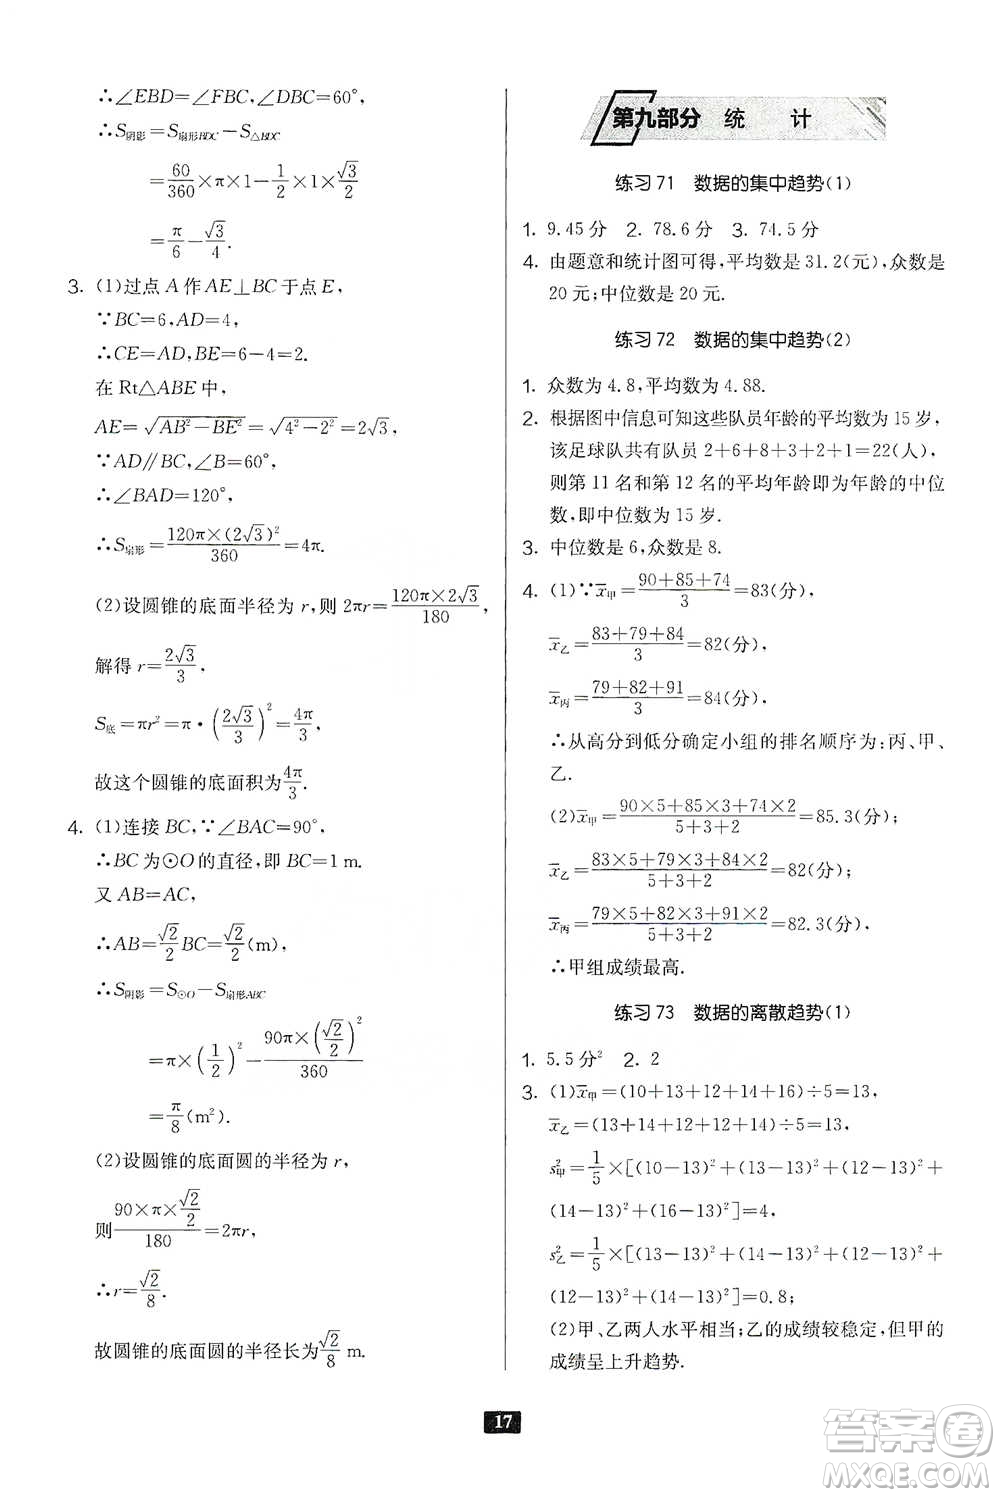 ∴∠EBD=∠FBC,∠DBC=60°,
∴S阴影=S扇形BDC-S△BDC
=60/360×π×1-1/2×1×√3/2
=π/6-√3/4.
3. (1)过点 A 作 AE⊥BC 于点 E,
∵BC=6,AD=4,
∴CE=AD,BE=6-4=2.
在 Rt△ABE 中,
AE=√(AB²-BE²)=√(4²-2²)=2√3,
∵AD∥BC,∠B=60°,
∴∠BAD=120°,
∴S扇形=120π×(2√3)²/360=4π.
(2)设圆锥的底面半径为 r,则 2πr=120π×2√3/180,
解得 r=2√3/3,
S底=πr²=π·(2√3/3)²=4π/3,
故这个圆锥的底面积为4π/3.
4. (1)连接 BC,∵∠BAC=90°,
∴BC 为⊙O 的直径,即 BC=1 m.
又 AB=AC,
∴AB=√2/2BC=√2/2(m),
∴S阴影=S⊙O-S扇形ABC
=π×(1/2)²-90π×(√2/2)²/360
=π/8(m²).
(2)设圆锥的底面圆的半径为 r,
则90×π×√2/2/180=2πr,
∴r=√2/8.
故圆锥的底面圆的半径长为√2/8 m.
第九部分 统 计
练习 71 数据的集中趋势(1)
1. 9.45 分 2. 78.6 分 3. 74.5 分
4. 由题意和统计图可得,平均数是 31.2(元),众数是
20 元;中位数是 20 元.
练习 72 数据的集中趋势(2)
1. 众数为 4.8,平均数为 4.88.
2. 根据图中信息可知这些队员年龄的平均数为 15 岁,
该足球队共有队员 2+6+8+3+2+1=22(人),
则第 11 名和第 12 名的平均年龄即为年龄的中位
数,即中位数为 15 岁.
3. 中位数是 6,众数是 8.
4. (1)∵x̄甲=90+85+74/3=83(分),
x̄乙=83+79+84/3=82(分),
x̄丙=79+82+91/3=84(分),
∴从高分到低分确定小组的排名顺序为:丙、甲、
乙.
(2)x̄甲=90×5+85×3+74×2/5+3+2=85.3(分);
x̄乙=83×5+79×3+84×2/5+3+2=82(分);
x̄丙=79×5+82×3+91×2/5+3+2=82.3(分),
∴甲组成绩最高.
练习 73 数据的离散趋势(1)
1. 5.5 分² 2. 2
3. (1)x̄甲=(10+13+12+14+16)÷5=13,
x̄乙=(13+14+12+12+14)÷5=13,
s²甲=1/5×[(10-13)²+(13-13)²+(12-13)²+
(14-13)²+(16-13)²]=4,
s²乙=1/5×[(13-13)²+(14-13)²+(12-13)²+
(12-13)²+(14-13)²]=0.8;
(2)甲、乙两人水平相当;乙的成绩较稳定,但甲的
成绩呈上升趋势.
17
答案圈
MXQE.COM